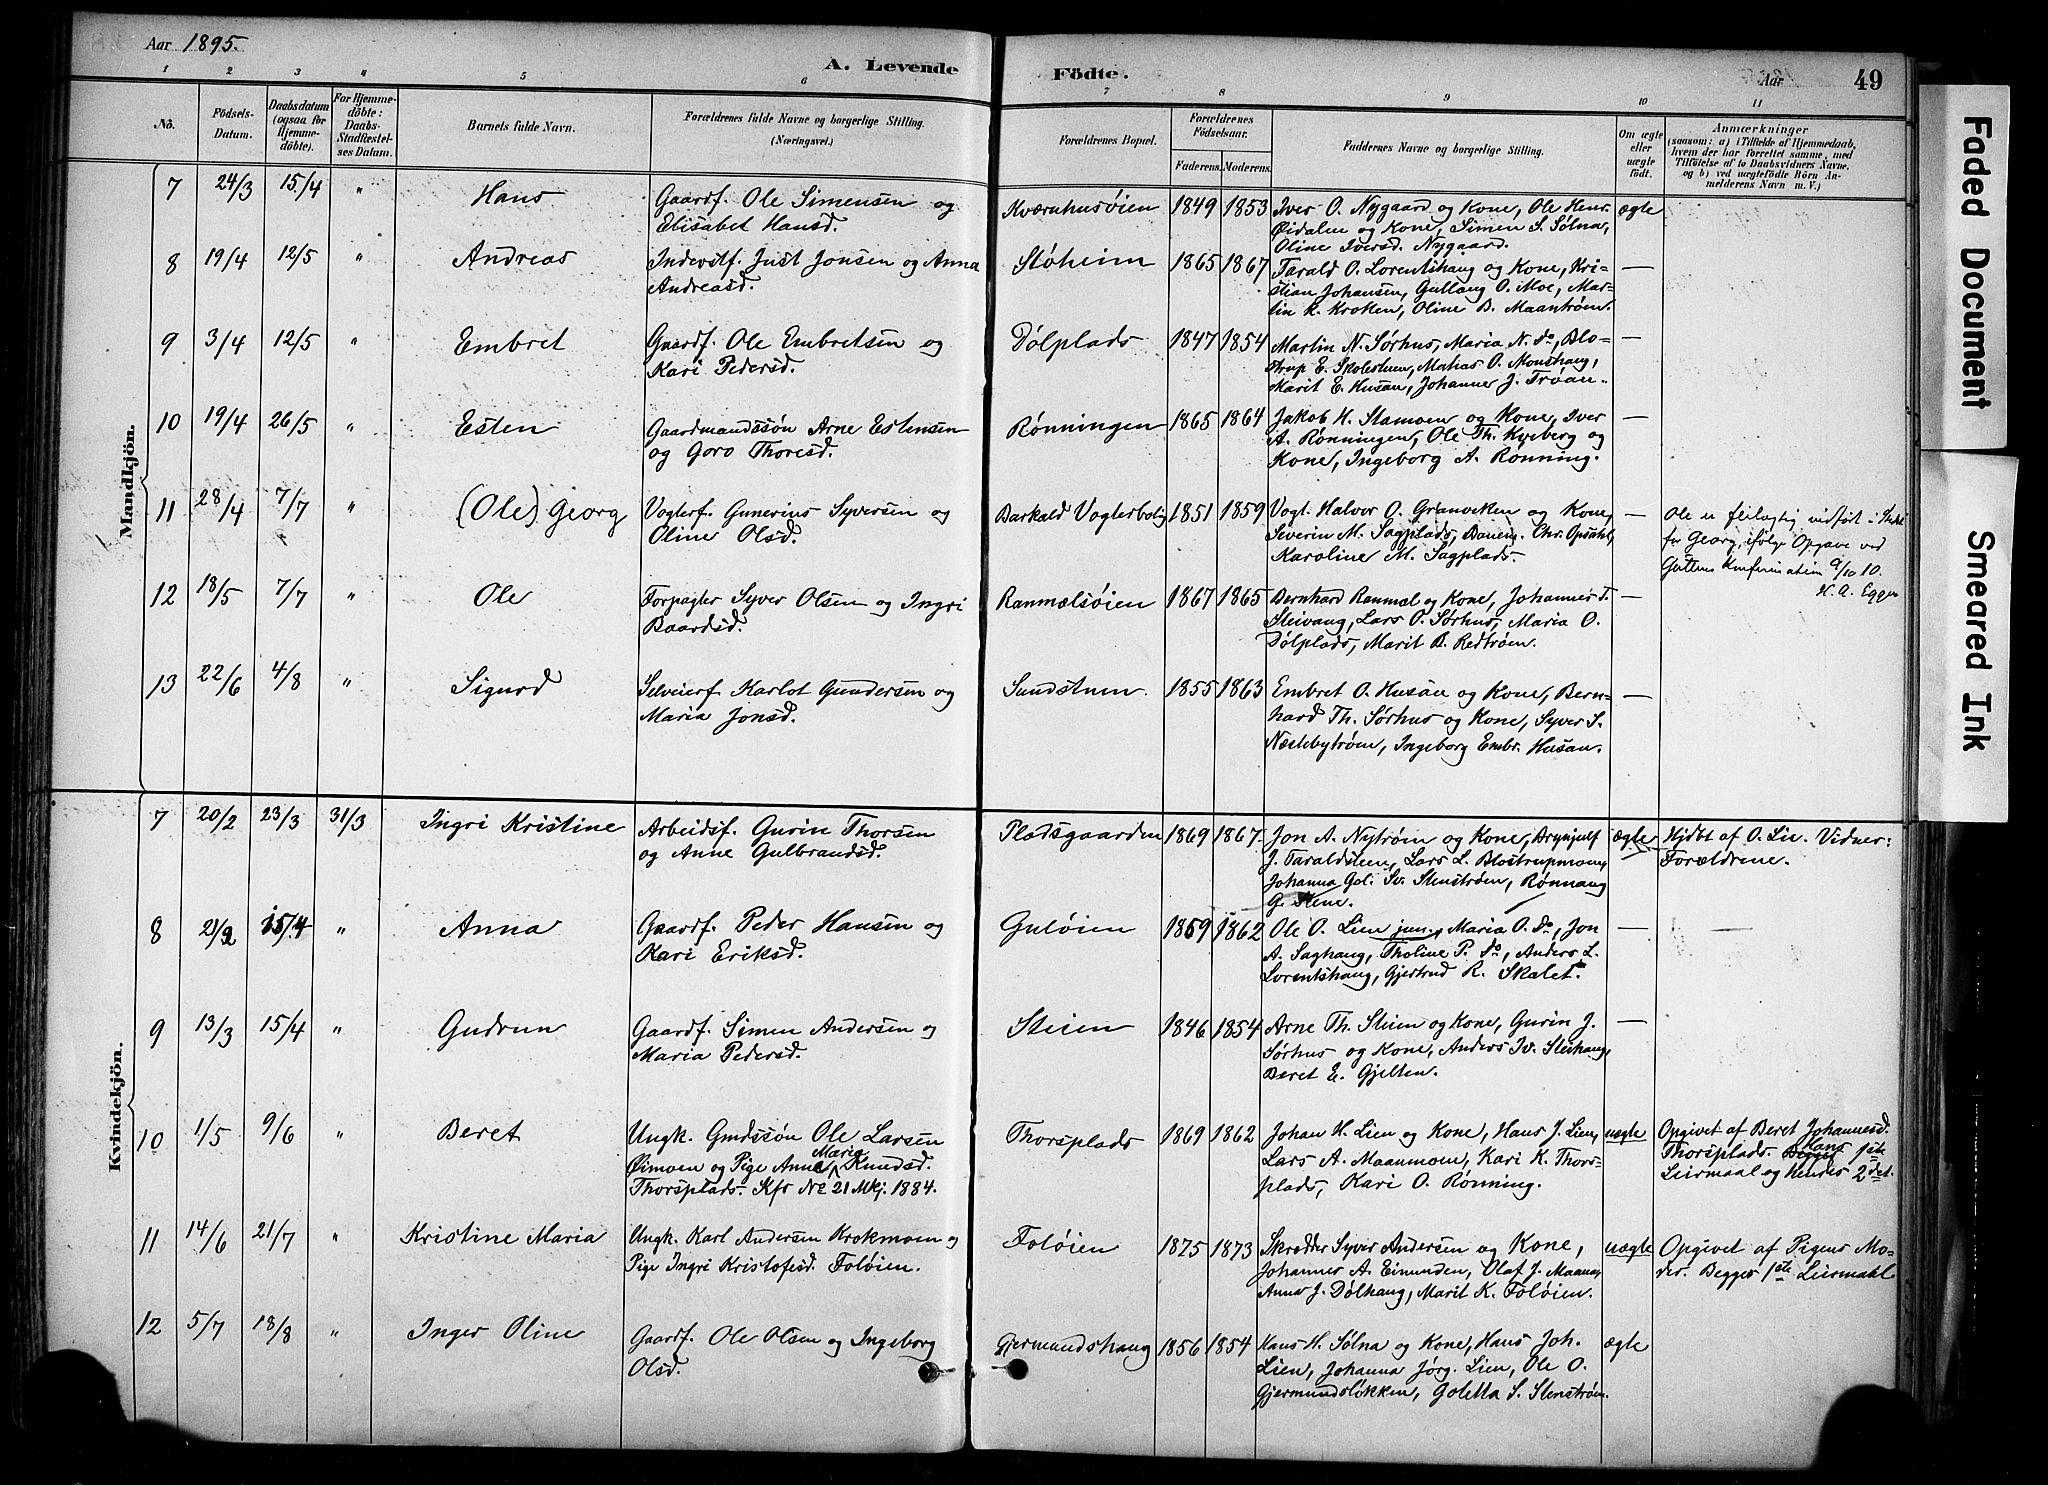 Aar 1895.
A. Levende Födte.
Aar 49
1 2 3 4 5 6 7 8 9 10 11
No.
Födsels-Datum.
Daabsdatum (ogsaa for Hjemmedöbte).
For Hjemmedöbte: Daabs-Stadfæstelses Datum.
Barnets fulde Navn.
Forældrenes fulde Navne og borgerlige Stilling. (Næringsvei.)
Forældrenes Bopæl.
Forældrenes Födselsaar.
Faderens. Moderens.
Faddernes Navne og borgerlige Stilling.
Om ægte eller uægte födt.
Anmærkninger
(saasom: a) i Tilfælde af Hjemmedaab, hvem der har forrettet samme, med Tilföielse af to Daabsvidners Navne, og b) ved uægtefödte Börn Anmelderens Navn m. V.)
Mandkjön.
7 24/3 15/4 " Hans
Gaardf. Ole Simensen og
Elisabet Hansd.
Kværnhusøien 1849 1853
Iver O. Nygaard og Kone, Ole Henr.
Øidalen og Kone, Simen S. Sølna,
Oline Iversd. Nygaard.
ægte
8 19/4 12/5 " Andreas
Inderstf. Just Jonsen og Anna
Andreasd.
Støheim 1865 1867
Tarald O. Lorentshaug og Kone, Kri-
stian Johansen, Gullaug O. Moe, Mar-
tin K. Kroken, Oline B. Maanstrøm.
—
9 3/4 12/5 " Embret
Gaardf. Ole Embretsen og
Kari Pedersd.
Dølplads 1847 1854
Martin N. Sørhus, Maria N. do, Blo-
strup E. Skolesteen, Matias O. Monshaug,
Marit E. Husan, Johannes J. Trøan.
—
10 19/4 26/5 " Esten
Gaardmandssøn Arne Estensen
og Goro Thoresd.
Rønningen 1865 1864
Jakob H. Stamoen og Kone, Iver
A. Rønningen, Ole Th. Kveberg og
Kone, Ingeborg A. Rønning.
—
11 28/4 7/7 " (Ole) Georg
Vogterf. Gunerius Syversen og
Oline Olsd.
Barkald Vogterbolig 1851 1859
Vogt. Halvor O. Granviken og Kone,
Severin M. Sagplads, Banem. Chr. Opsahl,
Karoline M. Sagplads.
—
Ole er feilagtig indført i Stedet
for Georg, ifølge Opgave ved
Guttens Konfirmation 9/10 10.
H. A. Eggen
12 18/5 7/7 " Ole
Forpagter Syver Olsen og Ingri
Baardsd.
Ranmælsøien 1867 1865
Bernhard Ranmæl og Kone, Johannes T.
Steivang, Lars O. Sørhus, Maria O.
Dølplads, Marit B. Redtrøen.
—
13 22/6 4/8 " Sigurd
Selveierf. Karlot Gundersen og
Maria Jonsd.
Sundstuen 1855 1863
Embret O. Husan og Kone, Bern-
hard Th. Sørhus og Kone, Syver S.
Næslebytrøen, Ingeborg Embr. Husan.
—
Kvindekjön.
7 20/2 23/3 31/3 Ingri Kristine
Arbeidsf. Gurin Thorsen
og Anne Gulbrandsd.
Pladsgaarden 1869 1867
Jon A. Nytrøen og Kone, Brynjulf
J. Taraldsteen, Lars L. Blostrupmoen,
Johanna Gol. Sv. Stenstrøm, Rønnaug
G. Stene.
ægte
Hjdbt af O. Lie. Vidner:
Forældrene.
8 21/2 15/4 " Anna
Gaardf. Peder Hansen og
Kari Eriksd.
Guløien 1859 1862
Ole O. Lien jun., Maria O. do, Jon
A. Saghaug, Tholine P. do, Anders L.
Lorentshaug, Gjertrud R. Skalet.
— —
9 13/3 15/4 " Gudrun
Gaardf. Simen Andersen og
Maria Pedersd.
Steien 1846 1854
Arne Th. Steien og Kone, Gurin J.
Sørhus og Kone, Anders Iv. Steihaug,
Beret E. Gjelten.
—
10 1/5 9/6 " Beret
Ungk. Gmdssøn Ole Larsen
Øimoen og Pige Anne Maria Knudsd.
Thorsplads. Kfr No 21 Mkj. 1884.
Thorsplads 1869 1862
Johan H. Lien og Kone, Hans J. Lien,
Lars A. Maanmoen, Kari K. Thors-
plads, Kari O. Rønning.
uægte
Opgivet af Beret Johannesd.
Thorsplads. Hans 1ste
Leirmaal og Hendes 2det.
11 14/6 21/7 " Kristine Maria
Ungk. Karl Andersen Krokmoen og
Pige Ingri Kristofesd. Foløien.
Foløien 1875 1873
Skrædder Syver Andersen og Kone,
Johannes A. Eimunden, Olaf J. Maana,
Anne J. Dølhaug, Marit K. Foløien.
uægte
Opgivet af Pigens Mo-
der. Begges 1ste Leirmaal
12 5/7 18/8 " Inger Oline
Gaardf. Ole Olsen og Ingeborg
Olsd.
Gjermundshaug 1856 1854
Hans H. Sølna og Kone, Hans Joh.
Lien, Johanna Jørg. Lien, Ole O.
Gjermundsløkken, Goletta S. Stenstrøm.
ægte
Faded Document
Smeared Ink